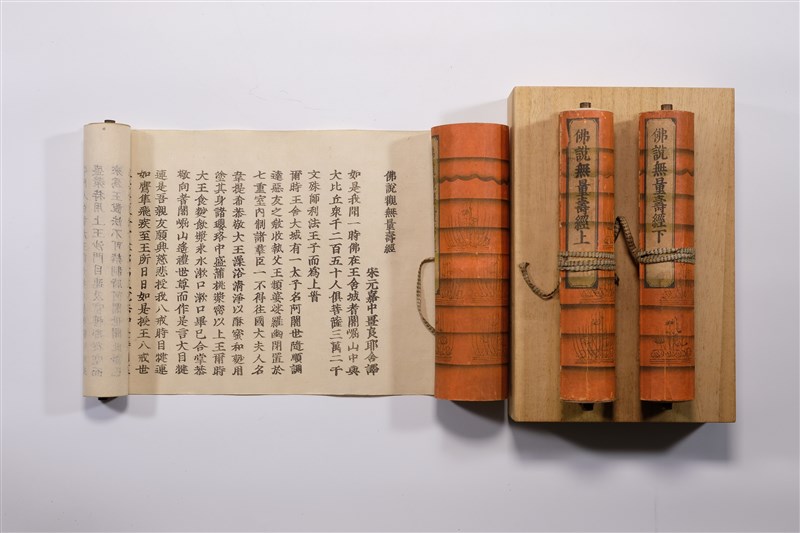 佛說無量壽經上
佛說無量壽經下
佛說觀無量壽經
宋元嘉中畺良耶舍譯
如是我聞一時佛在王舍城耆闍崛山中與
大比丘衆千二百五十人俱菩薩三萬二千
文殊師利法王子而爲上首
爾時王舍大城有一太子名阿闍世隨順調
達惡友之敎收執父王頻婆娑羅幽閉置於
七重室內制諸羣臣一不得往國大夫人名
韋提希恭敬大王澡浴清淨以酥蜜和麨用
塗其身諸瓔珞中盛蒲桃漿密以上王爾時
大王食麨飲漿求水漱口漱口畢已合掌恭
敬向耆闍崛山遙禮世尊而作是言大目犍
連是吾親友願興慈悲授我八戒時目犍連
如鷹隼飛疾至王所日日如是授王八戒世